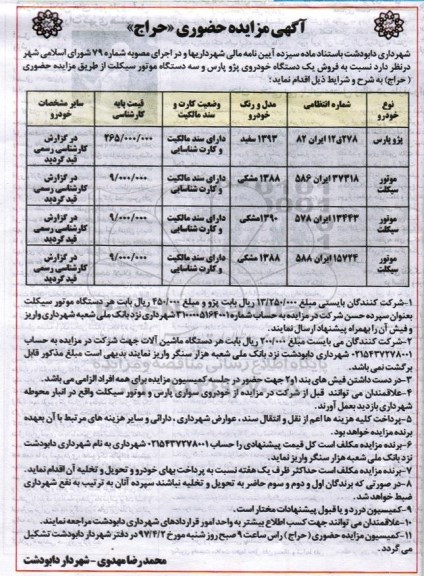 آگهی مزایده حضوری «حراج»
شهرداری دابودشت باستناد ماده سیزده آیین نامه مالی شهرداریها و در اجرای مصوبه شماره ۷۹ شورای اسلامی شهر
درنظر دارد نسبت به فروش یک دستگاه خودروی پژو پارس و سه دستگاه موتور سیکلت از طریق مزایده حضوری
( حراج) به شرح و شرایط ذیل اقدام نماید:
نوع خودرو | شماره انتظامی | مدل و رنگ خودرو | وضعیت کارت و سند مالکیت | قیمت پایه کارشناسی | سایر مشخصات خودرو
پژو پارس | ۲۷۸ق۱۲ ایران ۸۲ | ۱۳۹۳ سفید | دارای سند مالکیت و کارت شناسایی | ۲۶۵/۰۰۰/۰۰۰ | در گزارش کارشناسی رسمی قید گردید
موتور سیکلت | ۳۷۳۱۸ ایران ۵۸۶ | ۱۳۸۸ مشکی | دارای سند مالکیت و کارت شناسایی | ۹/۰۰۰/۰۰۰ | در گزارش کارشناسی رسمی قید گردید
موتور سیکلت | ۱۳۴۴۳ ایران ۵۷۸ | ۱۳۹۰ مشکی | دارای سند مالکیت و کارت شناسایی | ۹/۰۰۰/۰۰۰ | در گزارش کارشناسی رسمی قید گردید
موتور سیکلت | ۱۵۷۲۴ ایران ۵۸۸ | ۱۳۸۸ مشکی | دارای سند مالکیت و کارت شناسایی | ۹/۰۰۰/۰۰۰ | در گزارش کارشناسی رسمی قید گردید
۱-شرکت کنندگان بایستی مبلغ ۱۳/۲۵۰/۰۰۰ ریال بابت پژو و مبلغ ۴۵۰/۰۰۰ ریال بابت هر دستگاه موتور سیکلت
بعنوان سپرده حسن شرکت در مزایده به حساب شماره ۳۱۰۰۰۰۵۱۶۴۰۰۱ شهرداری نزد بانک ملی شعبه شهرداری واریز
و فیش آن را بهمراه پیشنهاد ارسال نمایند.
۲-شرکت کنندگان می بایست مبلغ ۲۰۰/۰۰۰ ریال بابت هر دستگاه ماشین آلات جهت شرکت در مزایده به حساب
۰۲۱۵۴۳۷۲۷۸۰۰۱ شهرداری دابودشت نزد بانک ملی شعبه هزار سنگر واریز نمایند بدیهی است مبلغ مذکور قابل
برگشت نمی باشد.
۳-در دست داشتن فیش های بند ۱و۲ جهت حضور در جلسه کمیسیون مزایده برای همه افراد الزامی می باشد.
۴-علاقمندان می توانند قبل از شرکت در مزایده از خودروی سواری پارس و موتور سیکلت واقع در انبار محوطه
شهرداری بازدید بعمل آورند.
۵-پرداخت کلیه هزینه ها اعم از نقل و انتقال سند، عوارض شهرداری ، دارائی و سایر هزینه های مرتبط با آن بعهده
برنده مزایده خواهد بود.
۶-برنده مزایده مکلف است کل قیمت پیشنهادی را حساب ۰۲۱۵۴۳۷۲۷۸۰۰۱ شهرداری به نام شهرداری دابودشت
نزد بانک ملی شعبه هزار سنگر واریز نماید.
۷-برنده مزایده مکلف است حداکثر ظرف یک هفته نسبت به پرداخت بهای خودرو و تحویل و تخلیه آن اقدام نماید.
۸-در صورتی که برندگان اول و دوم و سوم حاضر به تحویل و تخلیه نباشند سپرده آنان به ترتیب به نفع شهرداری
ضبط خواهد شد.
۹-کمیسیون در رد و یا قبول پیشنهادات مختار است.
۱۰-علاقمندان می توانند جهت کسب اطلاع بیشتر به واحد امور قراردادهای شهرداری دابودشت مراجعه نمایند.
۱۱-کمیسیون مزایده حضوری ( حراج) راس ساعت ۹ صبح روز شنبه مورخ ۹۷/۴/۲ در دفتر شهردار دابودشت تشکیل
می گردد.
محمدرضا مهدوی - شهردار دابودشت